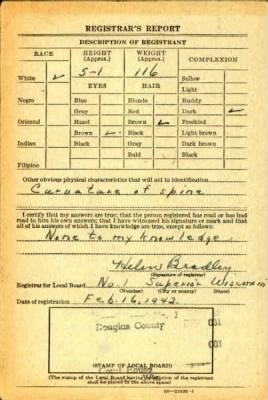 REGISTRAR'S REPORT
DESCRIPTION OF REGISTRANT
RACE HEIGHT (Approx.) WEIGHT (Approx.) COMPLEXION
White ✓ 5-1 116 Sallow
EYES HAIR Light
Negro Blue Blonde Ruddy
Gray Red Dark ✓
Oriental Hazel Brown ✓ Freckled
Brown ✓ Black Light brown
Indian Black Gray Dark brown
Bald Black
Filipino
Other obvious physical characteristics that will aid in identification
Curvature of spine
I certify that my answers are true; that the person registered has read or has had
read to him his own answers; that I have witnessed his signature or mark and that
all of his answers of which I have knowledge are true, except as follows:
None to my knowledge
Helen Bradley
(Signature of registrar)
Registrar for Local Board No. 1 Superior Wisconsin
(Number) (City or county) (State)
Date of registration Feb. 16, 1942.
Douglas County
(STAMP OF LOCAL BOARD)
(The stamp of the Local Board having jurisdiction of the registrant
shall be placed in the above space)